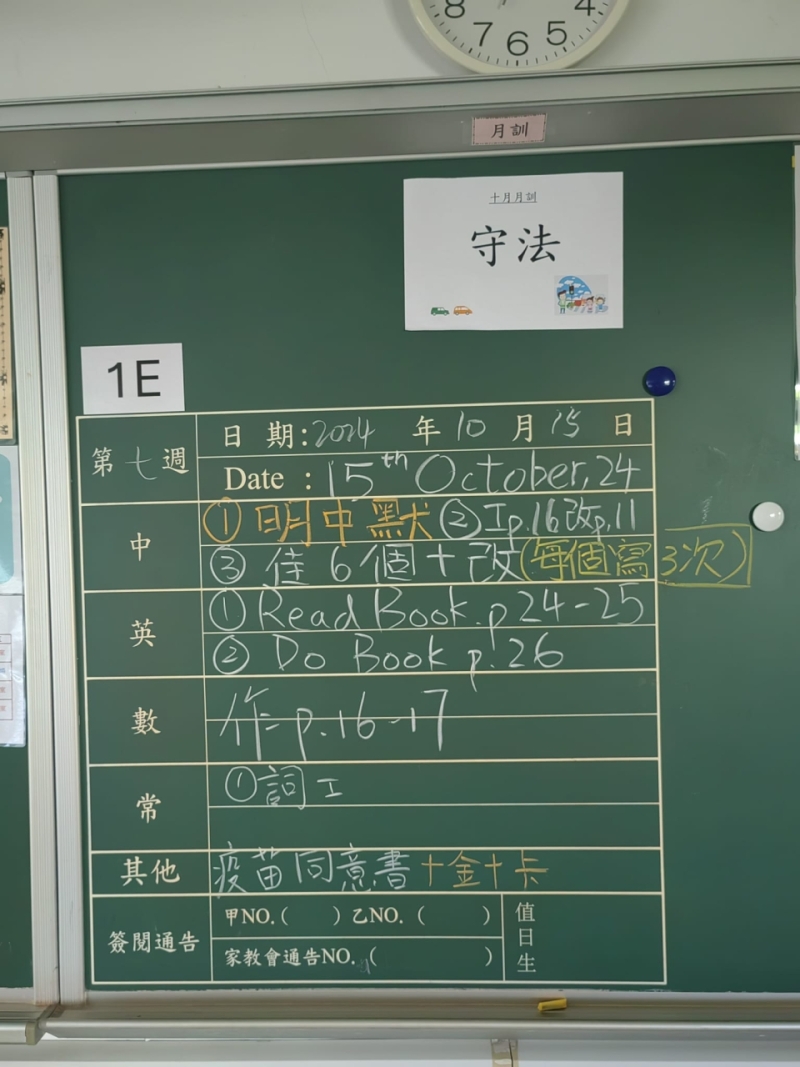 8 7 6 5 4
月訓
十月月訓
守法
1E
第七週
日 期:2024 年 10 月 15 日
Date : 15th October, 24
中
① 明中默 ② 工p.16改p.11
③ 佳6個+改(每個寫3次)
英
① Read Book p.24-25
② Do Book p.26
數
作= p.16-17
常
① 詞工
其他
疫苗同意書+金+卡
簽閱通告
甲NO.( ) 乙NO. ( )
家教會通告NO.( )
值日生